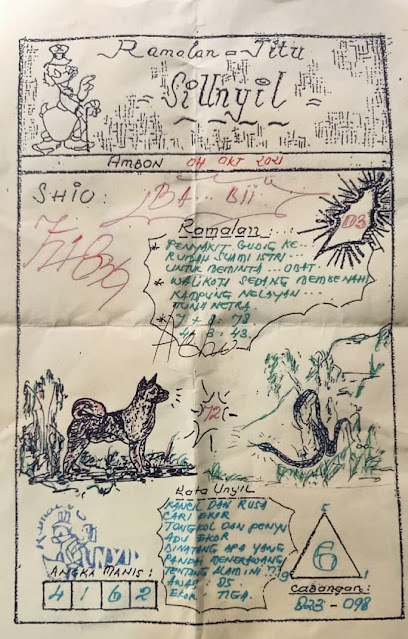 Ramalan = Jitu
= SiUnyil =
AMBON 04 OKT 2021
SHIO: BA... BII
D3
Ramalan:
* PENYAKIT GUDIG KE..
RUMAH SUAMI ISTRI...
UNTUK MEMINTA... OBAT
* WALIKOTA SEDANG MEMBENAHI
KAMPUNG NELAYAN...
TUNA NETRA
* 7 + A : 73
4 + B : 43.
12
Kata Unyil
KANCIL DAN RUSA
CARI EKOR
TONGKOL DAN PENYU
ADU EKOR
BINATANG APA YANG
PANDAI MENERAWANG
TENTANG ALAM INI ?
AWAS : D5
EKOR TIGA.
ANGKA MANIS:
4 1 6 2
5
6
9 1
Cabangan:
823 - 098